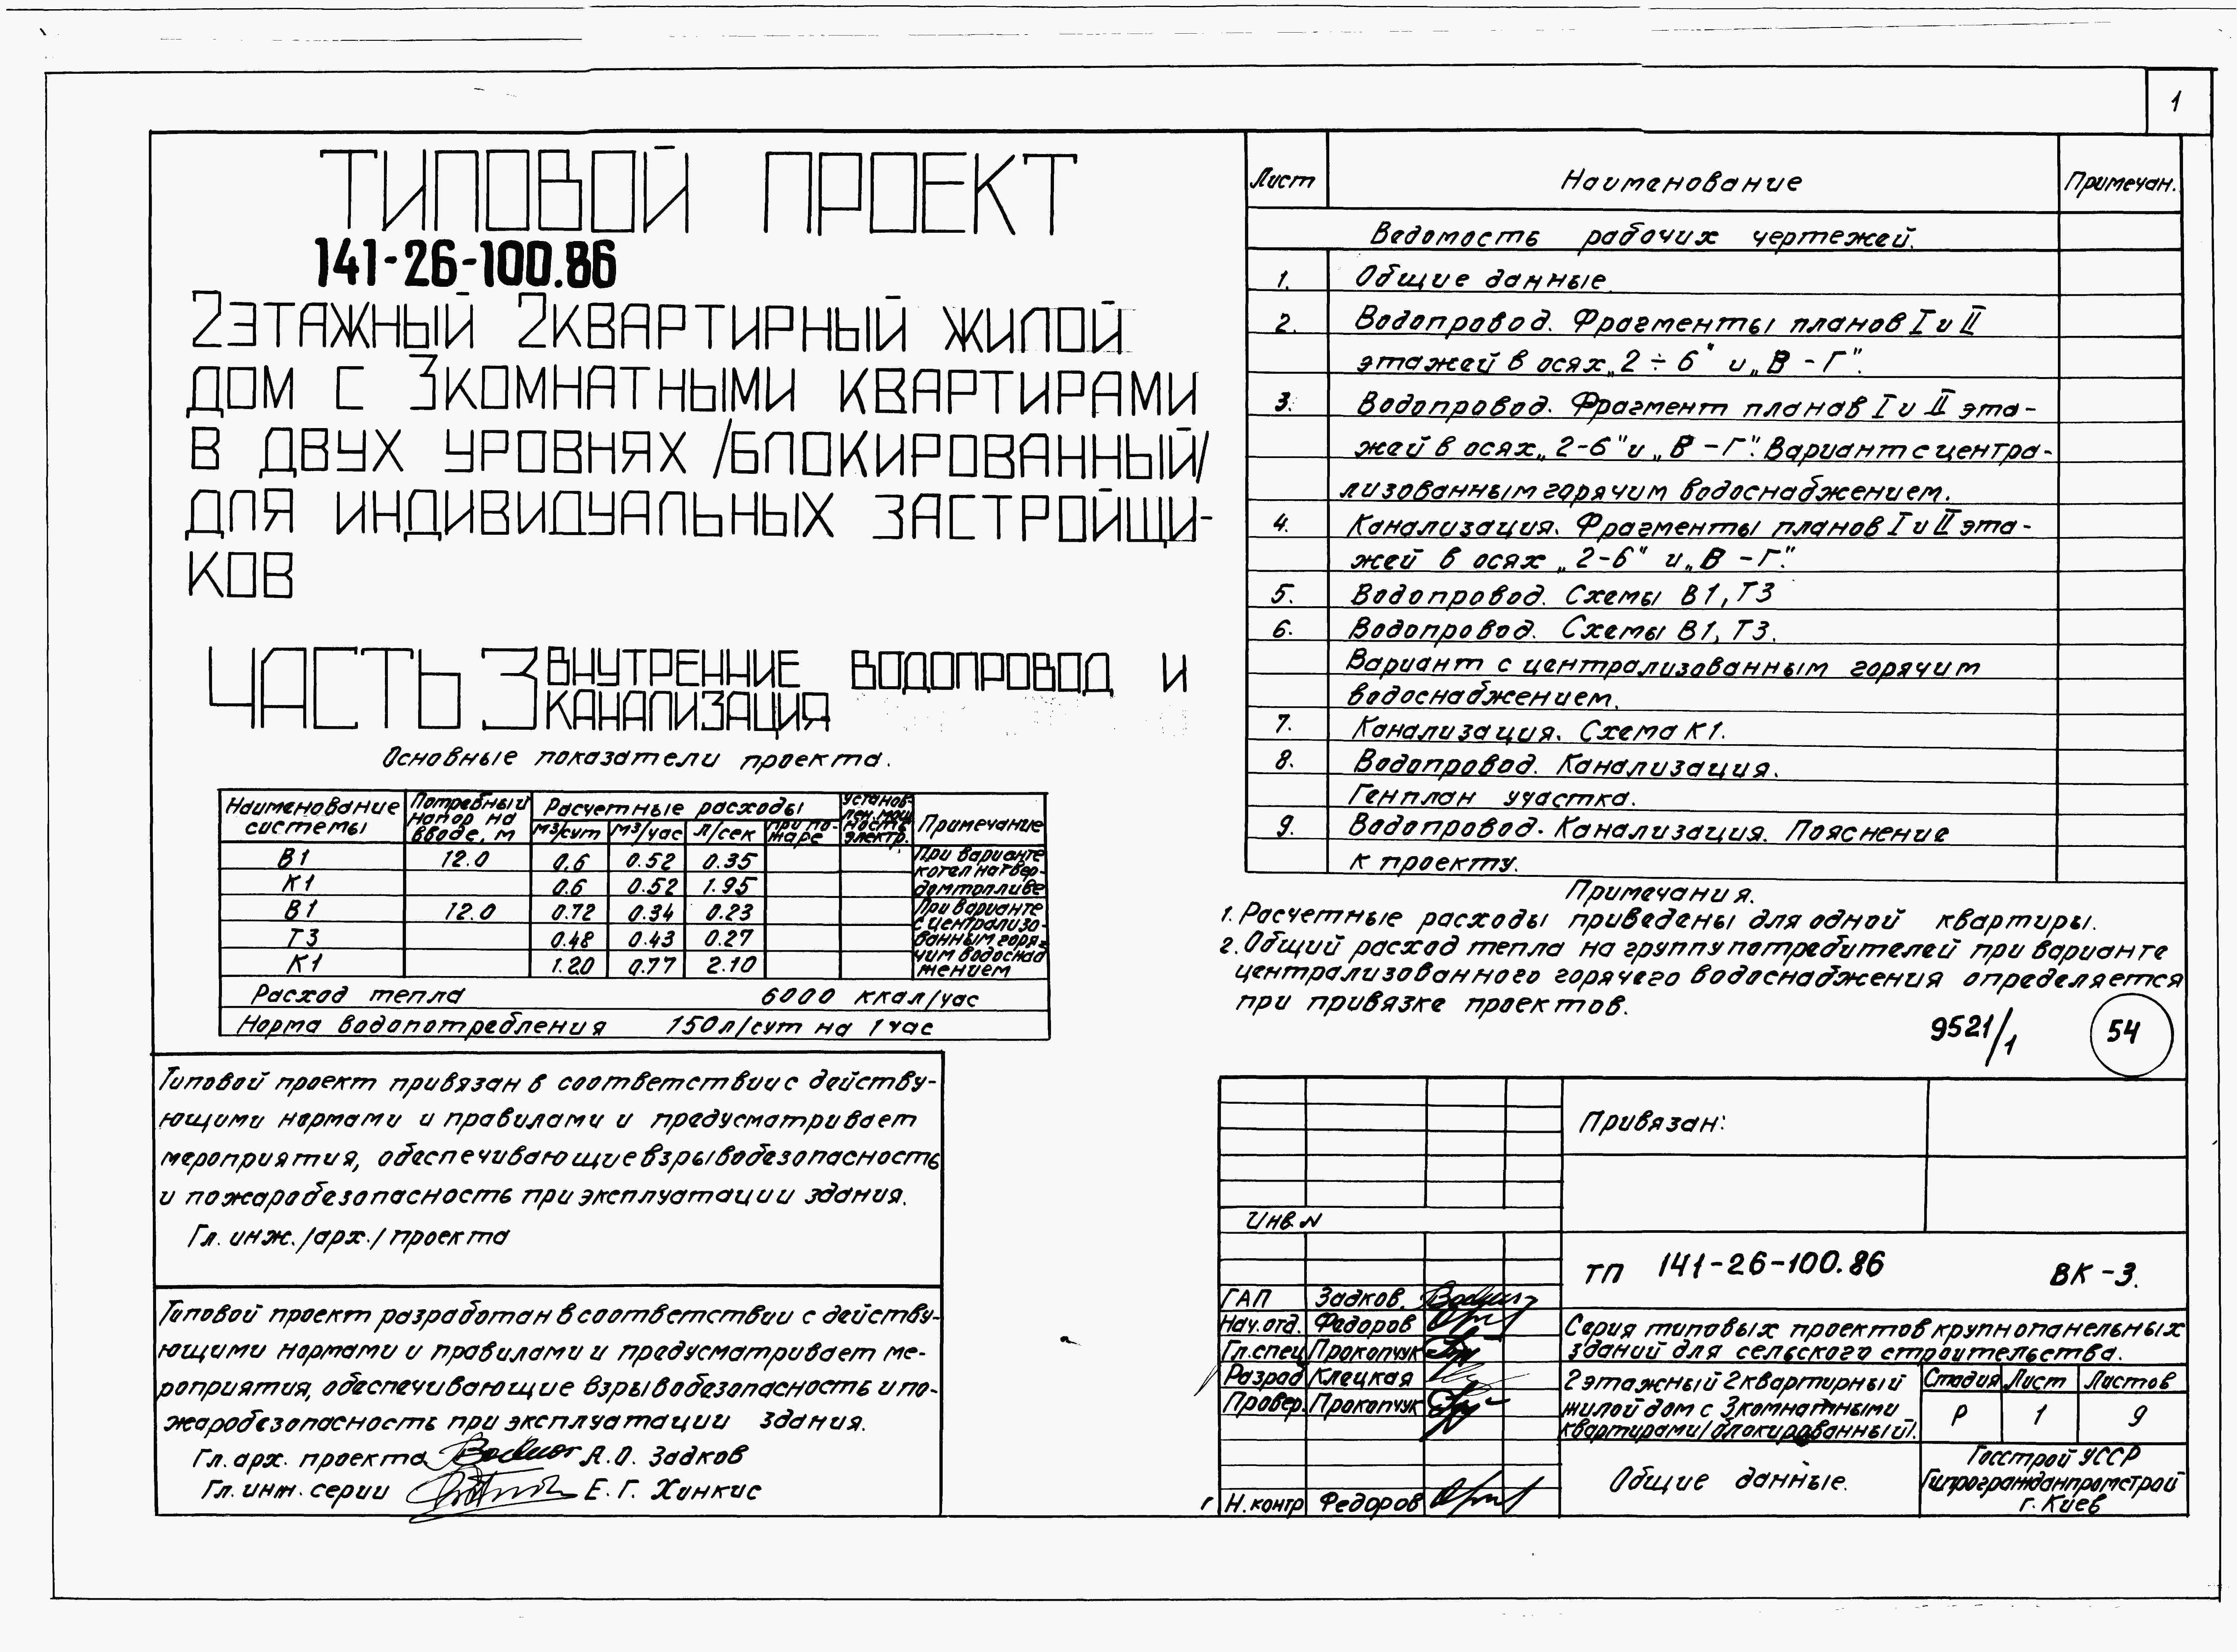 1
ТИПОВОЙ ПРОЕКТ
141-26-100.86
2ЭТАЖНЫЙ 2КВАРТИРНЫЙ ЖИЛОЙ
ДОМ С 3КОМНАТНЫМИ КВАРТИРАМИ
В ДВУХ УРОВНЯХ /БЛОКИРОВАННЫЙ/
ДЛЯ ИНДИВИДУАЛЬНЫХ ЗАСТРОЙЩИ-
КОВ
ЧАСТЬ 3 ВНУТРЕННИЕ ВОДОПРОВОД И
КАНАЛИЗАЦИЯ
Основные показатели проекта.
Наименование системы Потребный напор на вводе, м Расчетные расходы Установ-лен.мощ-ность электр. Примечание
м³/сут м³/час л/сек при по-жаре
В1 12.0 0.6 0.52 0.35 При варианте
К1 0.6 0.52 1.95 котел на твер-дом топливе
В1 12.0 0.72 0.34 0.23 При варианте
Т3 0.48 0.43 0.27 с централизо-ванным горя-
К1 1.20 0.77 2.10 чим водоснаб жением
Расход тепла 6000 ккал/час
Норма водопотребления 150л/сут на 1 час
Типовой проект привязан в соответствии с действу-
ющими нормами и правилами и предусматривает
мероприятия, обеспечивающие взрывобезопасность
и пожаробезопасность при эксплуатации здания.
Гл. инж./арх./ проекта
Типовой проект разработан в соответствии с действу-
ющими нормами и правилами и предусматривает ме-
роприятия, обеспечивающие взрывобезопасность и по-
жаробезопасность при эксплуатации здания.
Гл. арх. проекта А.О. Задков
Гл. инж. серии Е.Г. Хинкис
Лист Наименование Примечан.
Ведомость рабочих чертежей.
1. Общие данные.
2. Водопровод. Фрагменты планов I и II
этажей в осях „2 ÷ 6" и „В – Г".
3. Водопровод. Фрагмент планав I и II эта-
жей в осях „2-6" и „В – Г". Вариант с центра-
лизованным горячим водоснабжением.
4. Канализация. Фрагменты планов I и II эта-
жей в осях „2-6" и „В – Г".
5. Водопровод. Схемы В1, Т3
6. Водопровод. Схемы В1, Т3.
Вариант с централизованным горячим
водоснабжением.
7. Канализация. Схема К1.
8. Водопровод. Канализация.
Генплан участка.
9. Водопровод. Канализация. Пояснение
к проекту.
Примечания.
1. Расчетные расходы приведены для одной квартиры.
2. Общий расход тепла на группу потребителей при варианте
централизованного горячего водоснабжения определяется
при привязке проектов.
9521/1 54
Привязан:
Инв. N
ТП 141-26-100.86 ВК-3.
ГАП Задков.
Нач. отд. Федоров
Гл.спец Прокопчук
Разраб Клецкая
Провер. Прокопчук
Н. контр Федоров
Серия типовых проектов крупнопанельных
зданий для сельского строительства.
2этажный 2квартирный
жилой дом с 3комнатными
квартирами/блокированный/.
Стадия Лист Листов
Р 1 9
Общие данные.
Госстрой УССР
Гипрогражданпромстрой
г. Киев